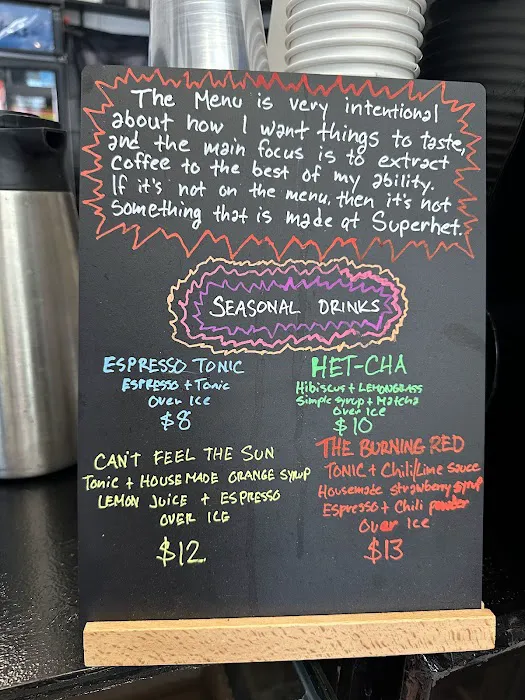 The Menu is very intentional
about how I want things to taste,
and the main focus is to extract
coffee to the best of my ability.
If it's not on the menu, then it's not
something that is made at Superhet.
SEASONAL DRINKS
ESPRESSO TONIC
ESPRESSO + Tonic
Over Ice
$8
HET-CHA
Hibiscus + LEMONGRASS
Simple syrup + Matcha
Over Ice
$10
CAN'T FEEL THE SUN
Tonic + HOUSEMADE ORANGE SYRUP
LEMON JUICE + ESPRESSO
OVER ICE
$12
THE BURNING RED
TONIC + Chili/Lime sauce
Housemade strawberry syrup
Espresso + Chili powder
Over Ice
$13